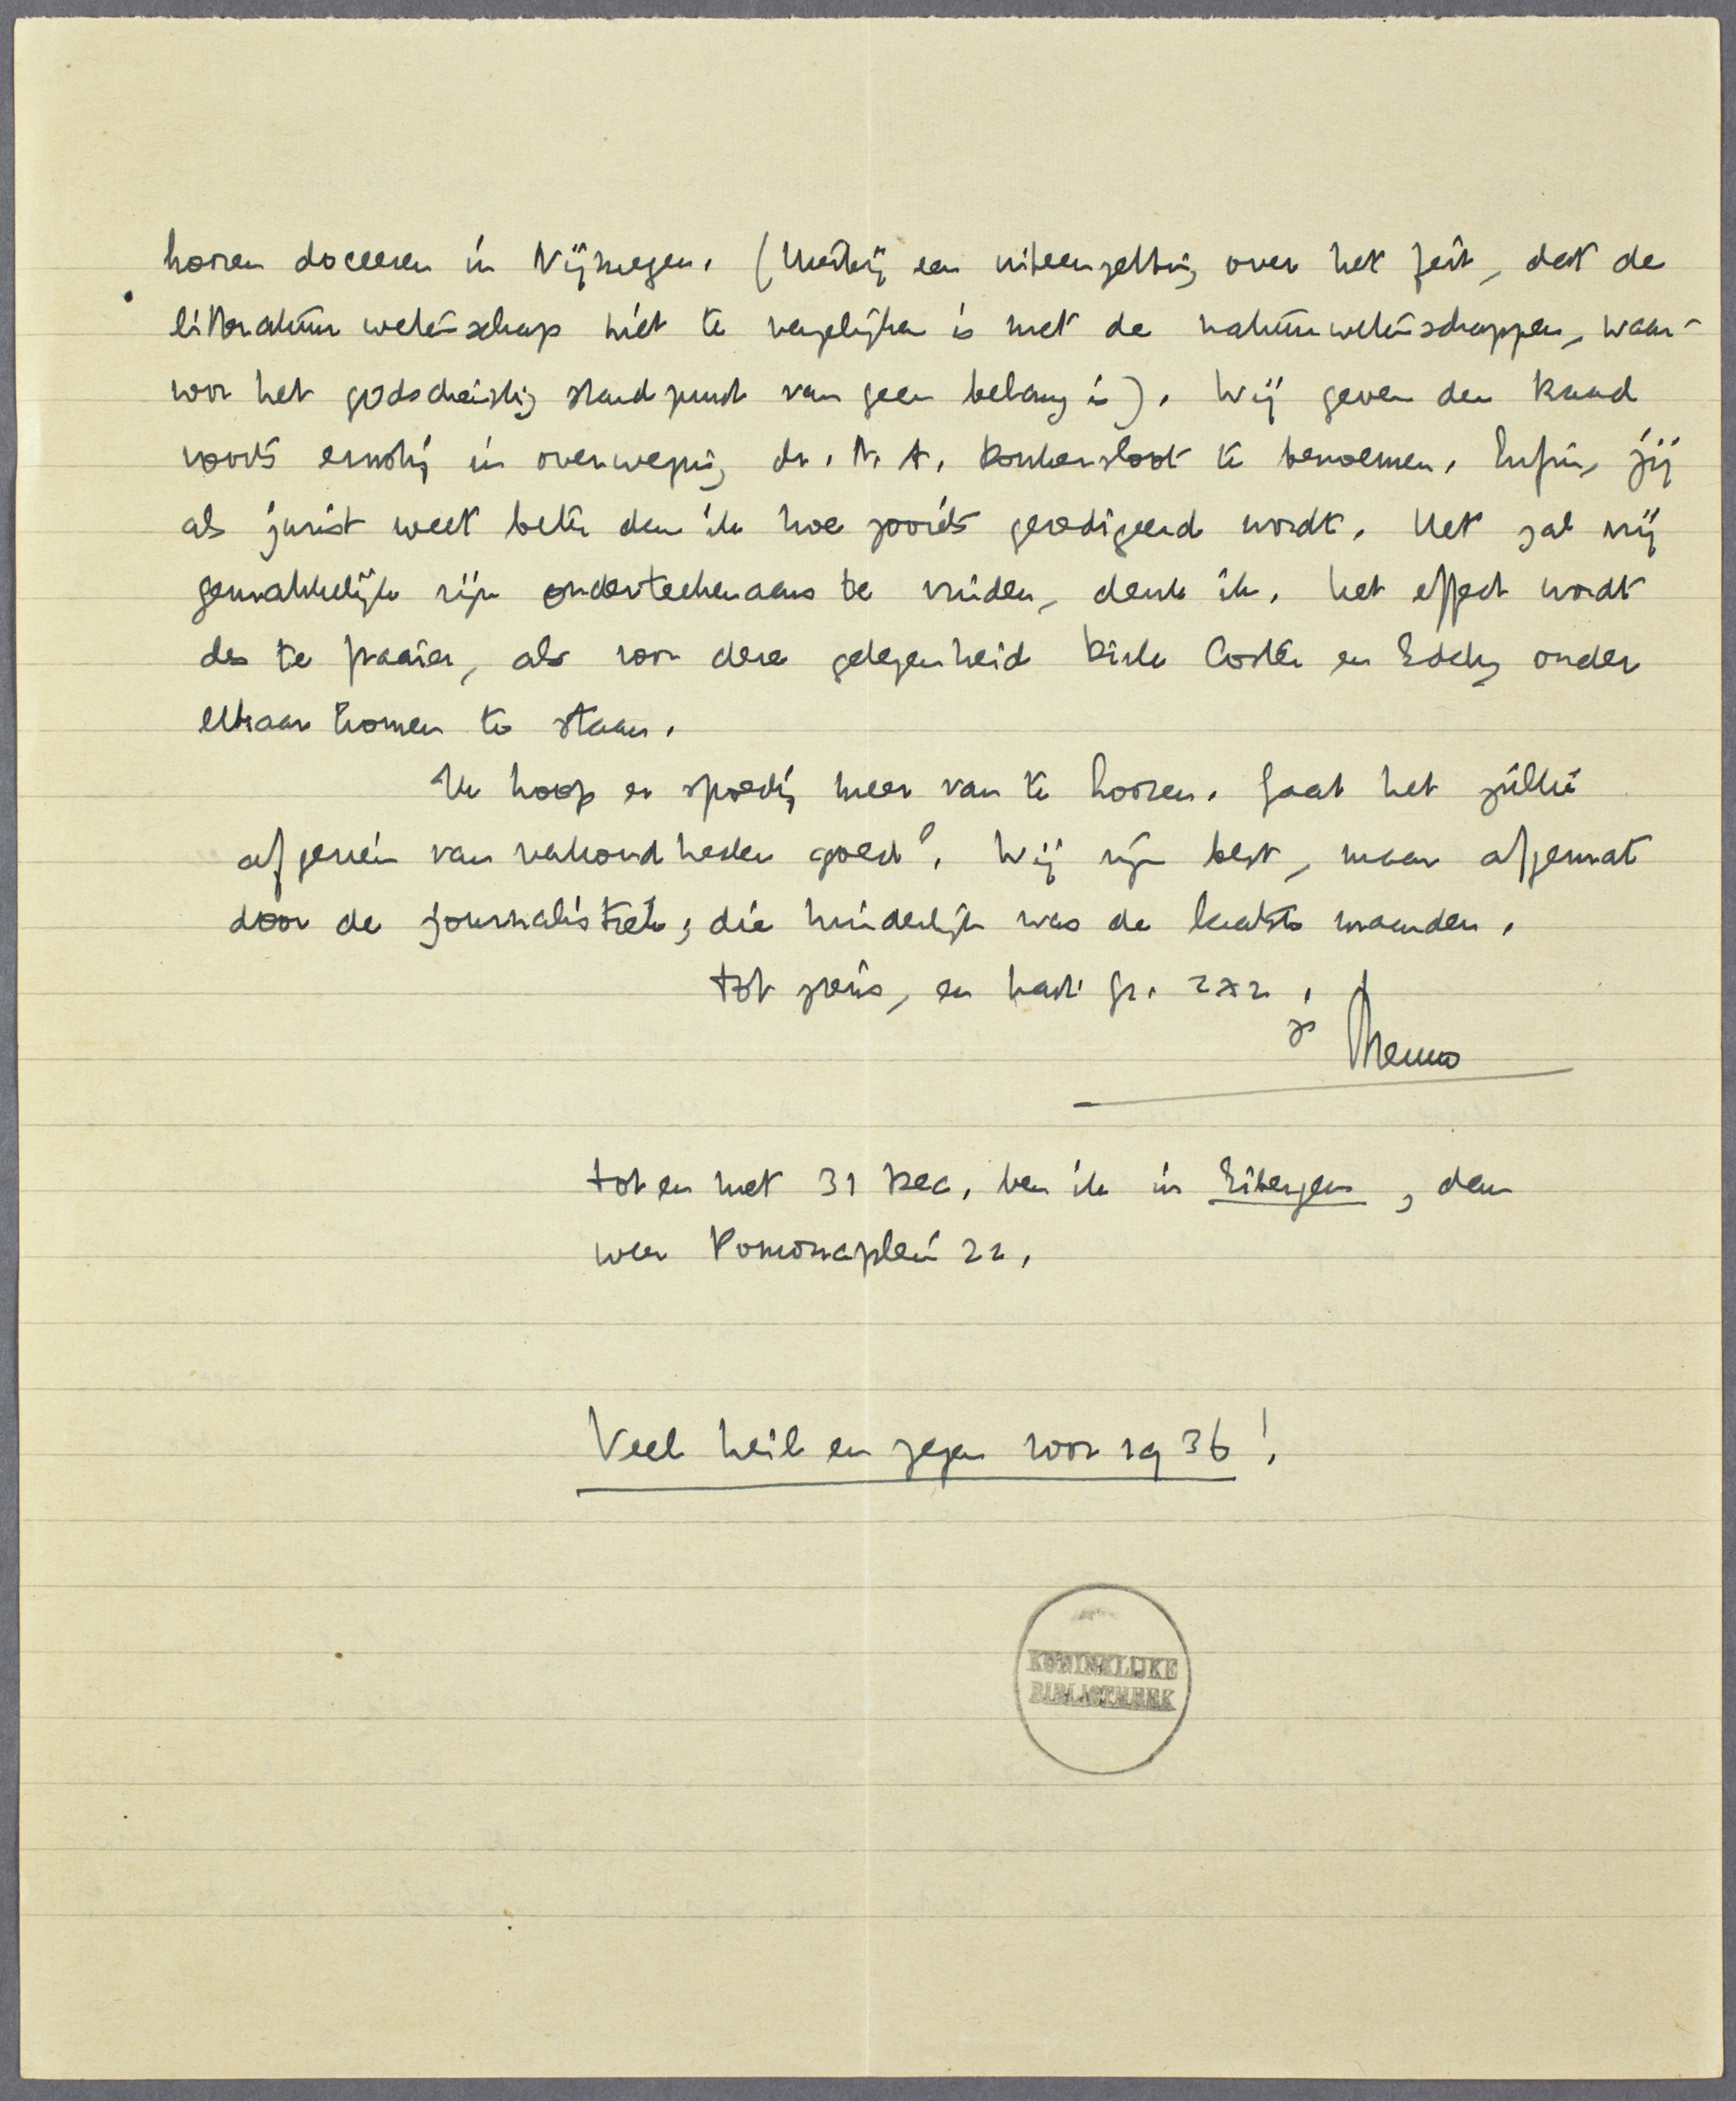 hooren doceeren in Nijmegen. (Hierbij een uiteenzetting over het feit, dat de
litteratuurwetenschap niet te vergelijken is met de natuurwetenschappen, waar-
voor het godsdienstig standpunt van geen belang is). Wij geven den Raad
voorts ernstig in overweging dr. N. A. Donkersloot te benoemen. Enfin, jij
als jurist weet beter dan ik hoe zooiets geredigeerd wordt. Het zal vrij
gemakkelijk zijn onderteekenaars te vinden, denk ik. Het effect wordt
des te fraaier, als voor deze gelegenheid Dirk Coster en Eddy onder
elkaar komen te staan.
Ik hoop er spoedig meer van te hooren. Gaat het jullie
afgezien van verkoudheden goed? Wij zijn best, maar afgemat
door de journalistiek, die hinderlijk was de laatste maanden.
tot ziens, en hart. gr. 2 x 2,
je Menno
tot en met 31 Dec. ben ik in Eibergen, dan
weer Pomonaplein 22.
Veel heil en zegen voor 1936!
KONINKLIJKE
BIBLIOTHEEK